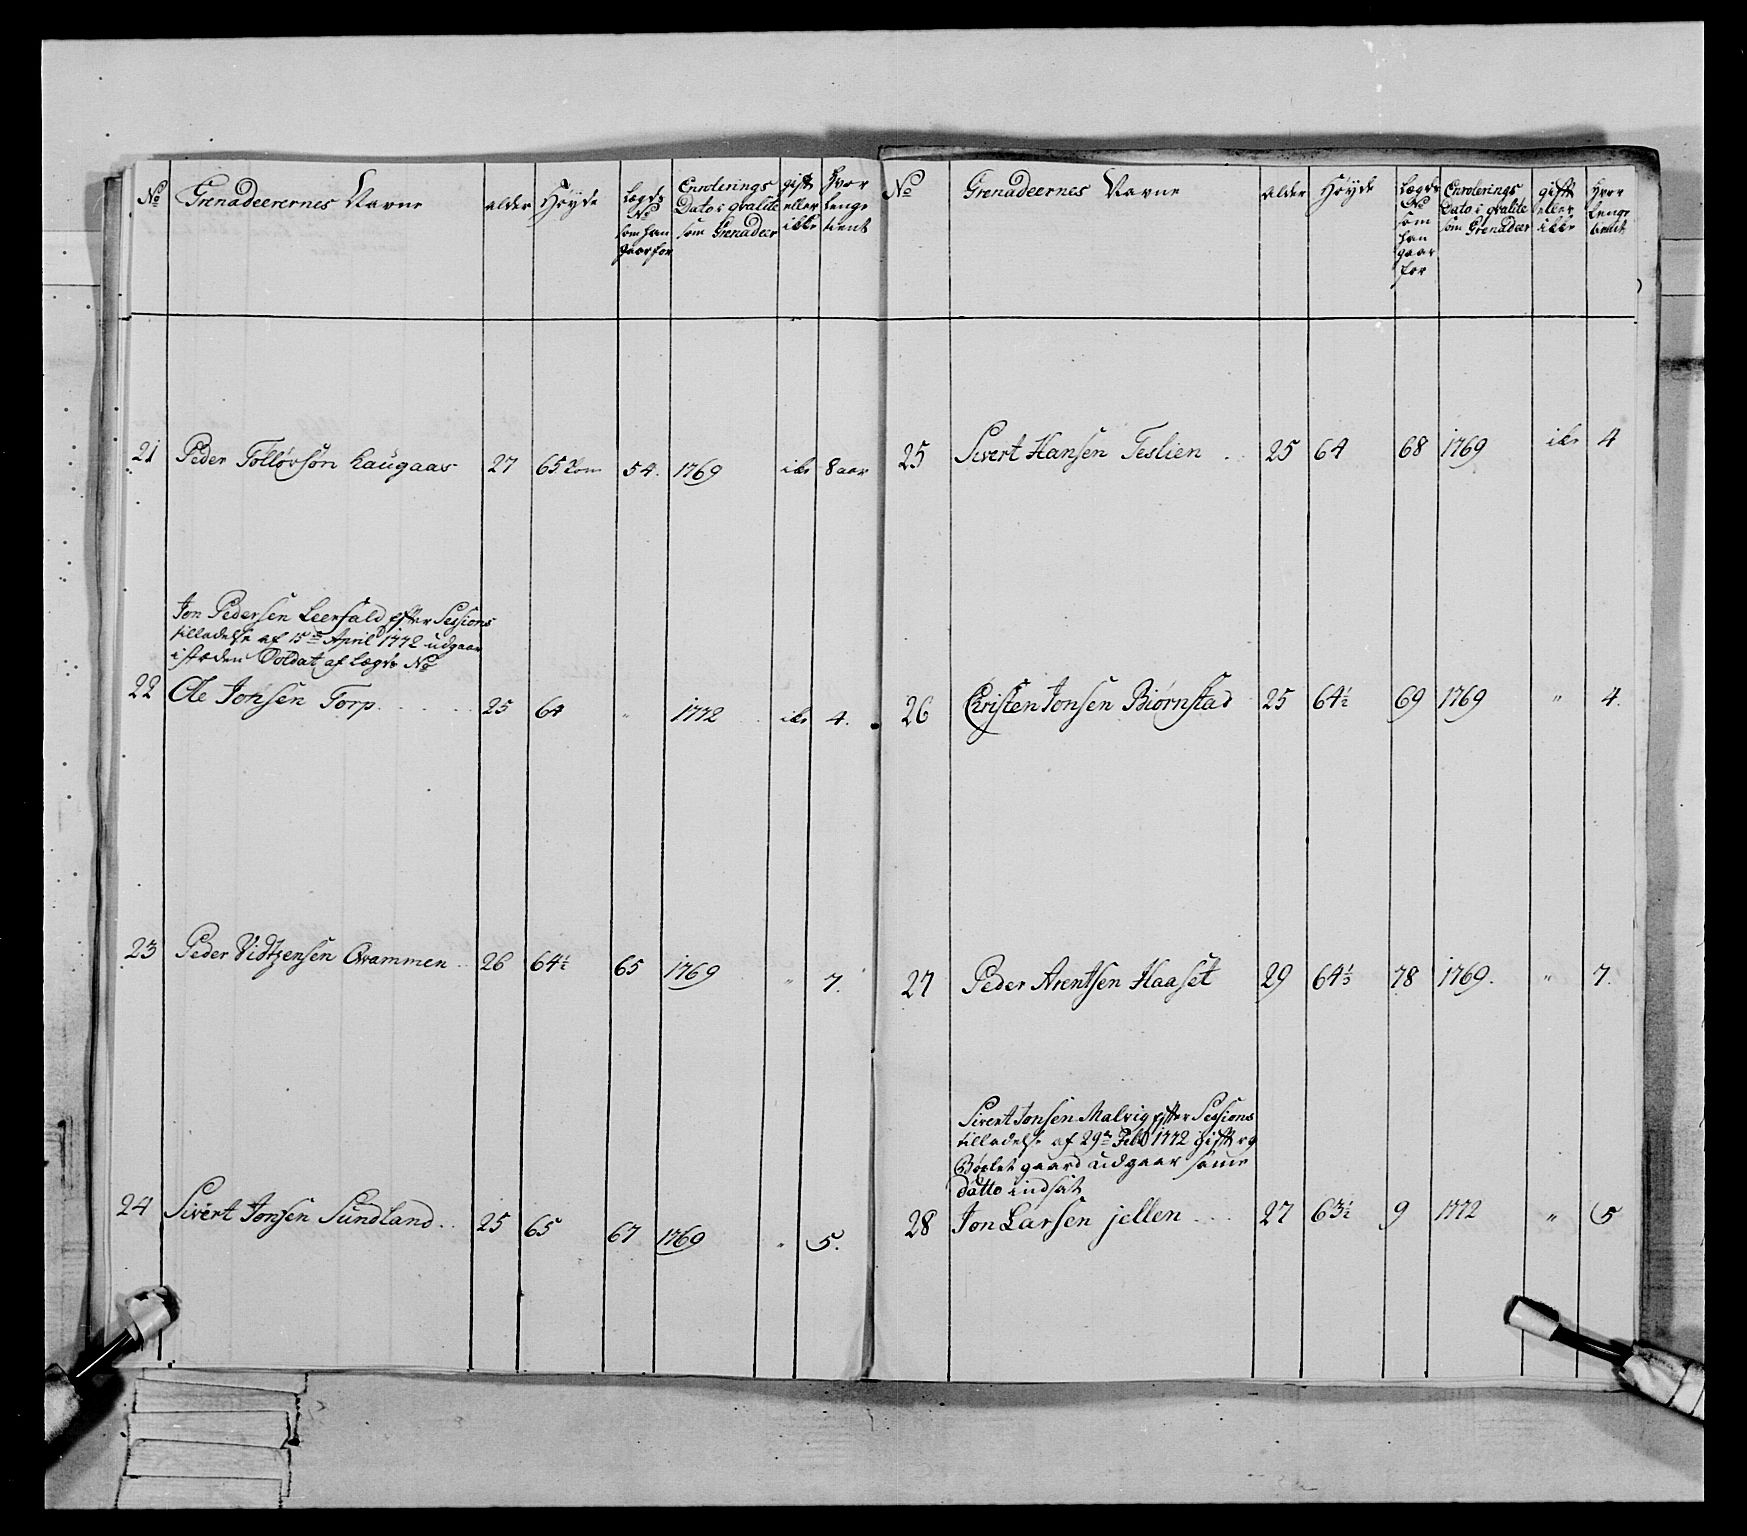 No
Grenadeerernes Navne
alder
Høyde
Lægds
No
som han
gaar for
Enrolerings
Dato i qvalite
som Grenadeer
gift
eller
ikke
hvor
lenge
tient
21 Peder Tolløvsøn Haugaas 27 65 Tom 54. 1769 ike 8 aar
Jon Pedersen Leerfald efter Sessions
tilladelse af 15de April 1772 udgaar
i stæden Soldat af Lægds No
22 Ole Jonsen Torp 25 64 " 1772 ike 4.
23 Peder Vidtzensen Qvammen 26 64½ 65 1769 " 7.
24 Sivert Jonsen Sundland 25 65 67 1769 " 5.
No
Grenadeernes Navne
alder
Høyde
Lægds
No
som
han
gaar
for
Enrolerings
Dato i qvalite
som Grenadeer
gift
eller
ikke
Hvor
lenge
tient
25 Sivert Hansen Teslien 25 64 68 1769 ike 4
26 Christen Jonsen Biørnstad 25 64½ 69 1769 " 4.
27 Peder Arentsen Haaset 29 64½ 78 1769. " 7.
Sivert Jonsen Malvig efter Sessions
tilladelse af 29de Feb 1772 Gift og
Bøxlet gaard udgaar same
datto indsat
28 Jon Larsen jellen 27 63½ 9 1772 " 5